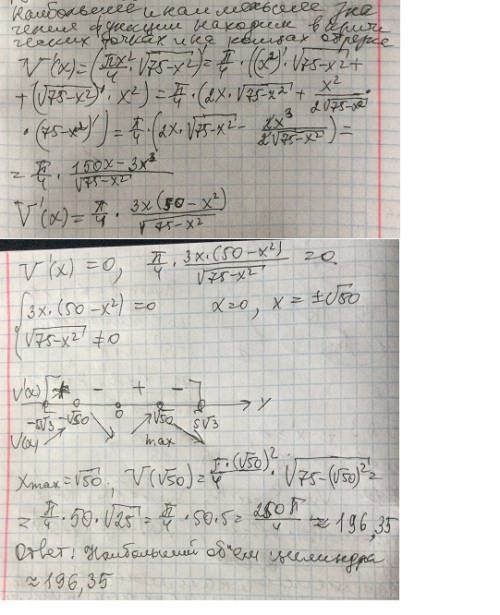 Наибольшее и наименьшее зна
чения функции находим в крити
ческих точках и на концах отрезка
V'(x)=(πx²/4 · √75-x²)' = π/4 · ((x²)' · √75-x² +
+ (√75-x²)' · x²) = π/4 · (2x · √75-x² + x²/2√75-x² ·
· (75-x²)') = π/4 · (2x · √75-x² - 2x³/2√75-x²) =
= π/4 · 150x-3x³/√75-x²
V'(x) = π/4 · 3x(50-x²)/√75-x²
V'(x) = 0, π/4 · 3x·(50-x²)/√75-x² = 0.
{3x·(50-x²)=0 x=0, x=±√50
√75-x² ≠0
V'(x) + - + -
-5√3 -√50 0 √50 5√3
V(x) max
Xmax = √50, V(√50) = π·(√50)²/4 · √75-(√50)² =
= π/4 · 50 · √25 = π/4 · 50 · 5 = 250π/4 ≈ 196,35
Ответ: Наибольший объем цилиндра
≈ 196,35